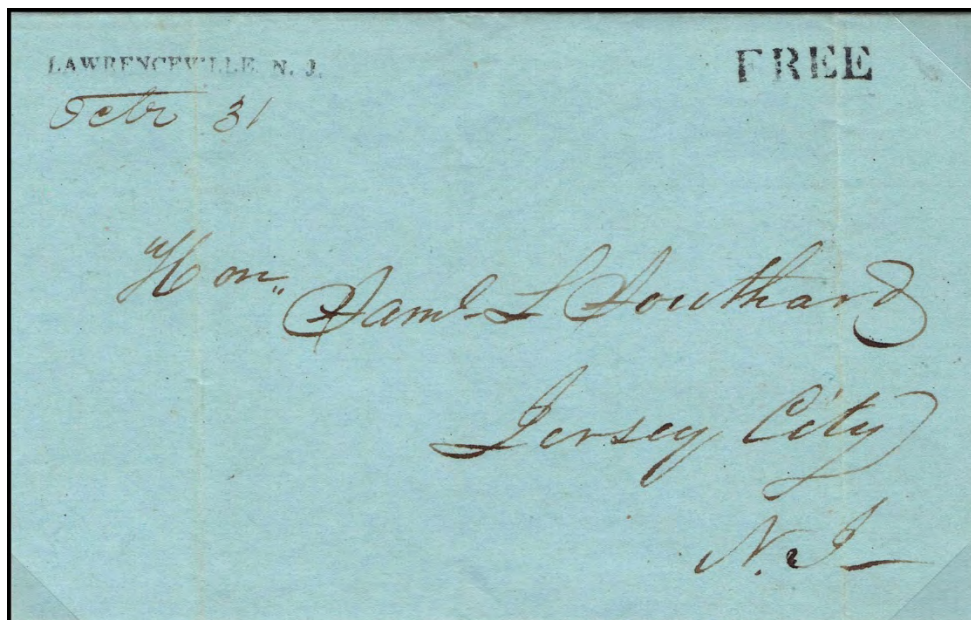 LAWRENCEVILLE N. J.
FREE
Octr 31
Hon,,
Saml. L Southard
Jersey City
N. J